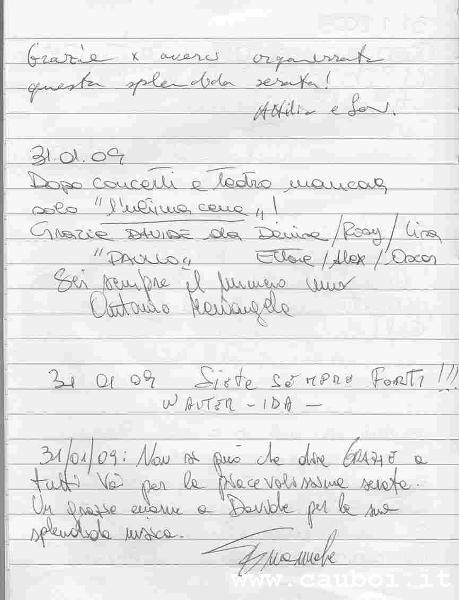 Grazie x averci organizzato
questa splendida serata!
Attilio e
31.01.09
Dopo concerti e teatro mancava
solo "l'ultima cena"!
Grazie DAVIDE da Denise/Rosy/Lisa
"PAOLO" Ettore/Alex/Oscar
Sei sempre il numero uno
Antonio Mariangela
31 01 09 Siete SEMPRE FORTI!!!
WALTER - IDA -
31/01/09: Non si può che dire GRAZIE a
tutti Voi per la piacevolissima serata.
Un grazie enorme a Davide per la sua
splendida musica.
Emanuele
www.cauboi.it